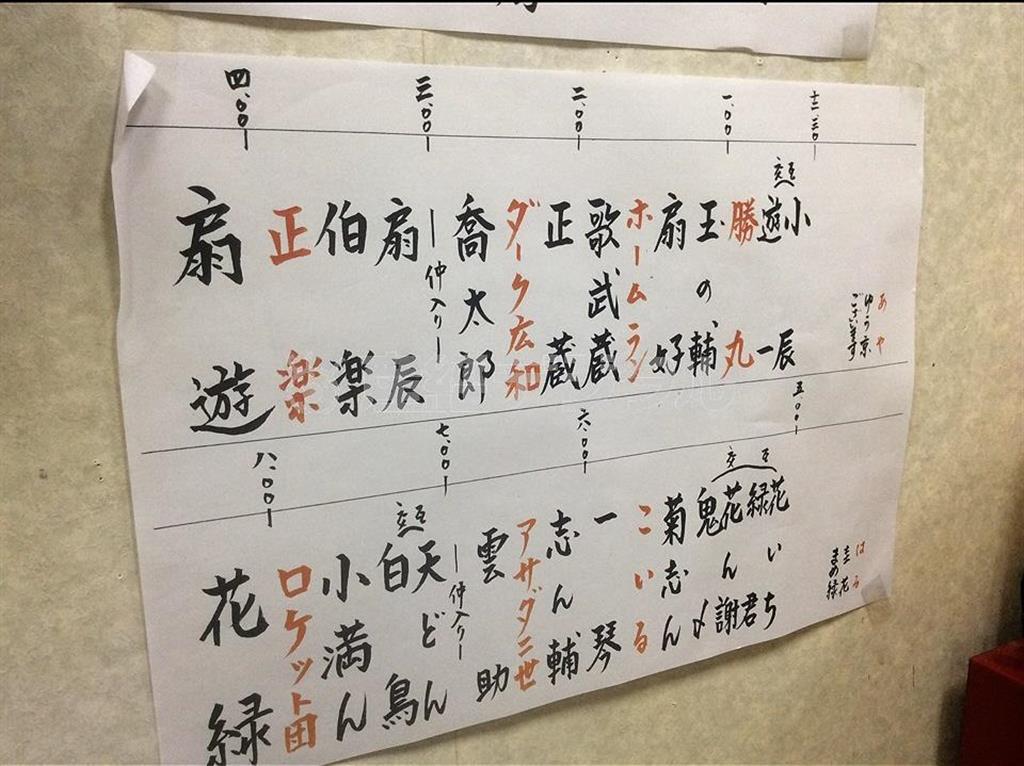 十二.三〇
一.〇〇
二.〇〇
三.〇〇
四.〇〇
あや
ゆう京
ございます
交互
小辰
遊一
勝丸
玉の輔
扇好
ホームラン
歌武蔵
正蔵
ダーク広和
喬太郎
仲入り
扇辰
伯楽
正楽
扇遊
五.〇〇
六.〇〇
七.〇〇
八.〇〇
はる
圭花
まめ緑
交互
花いち
緑君
花ん謝
鬼〆
菊志ん
こいる
一琴
志ん輔
アサダ二世
雲助
仲入り
交互
天どん
白鳥
小満ん
ロケット団
花緑